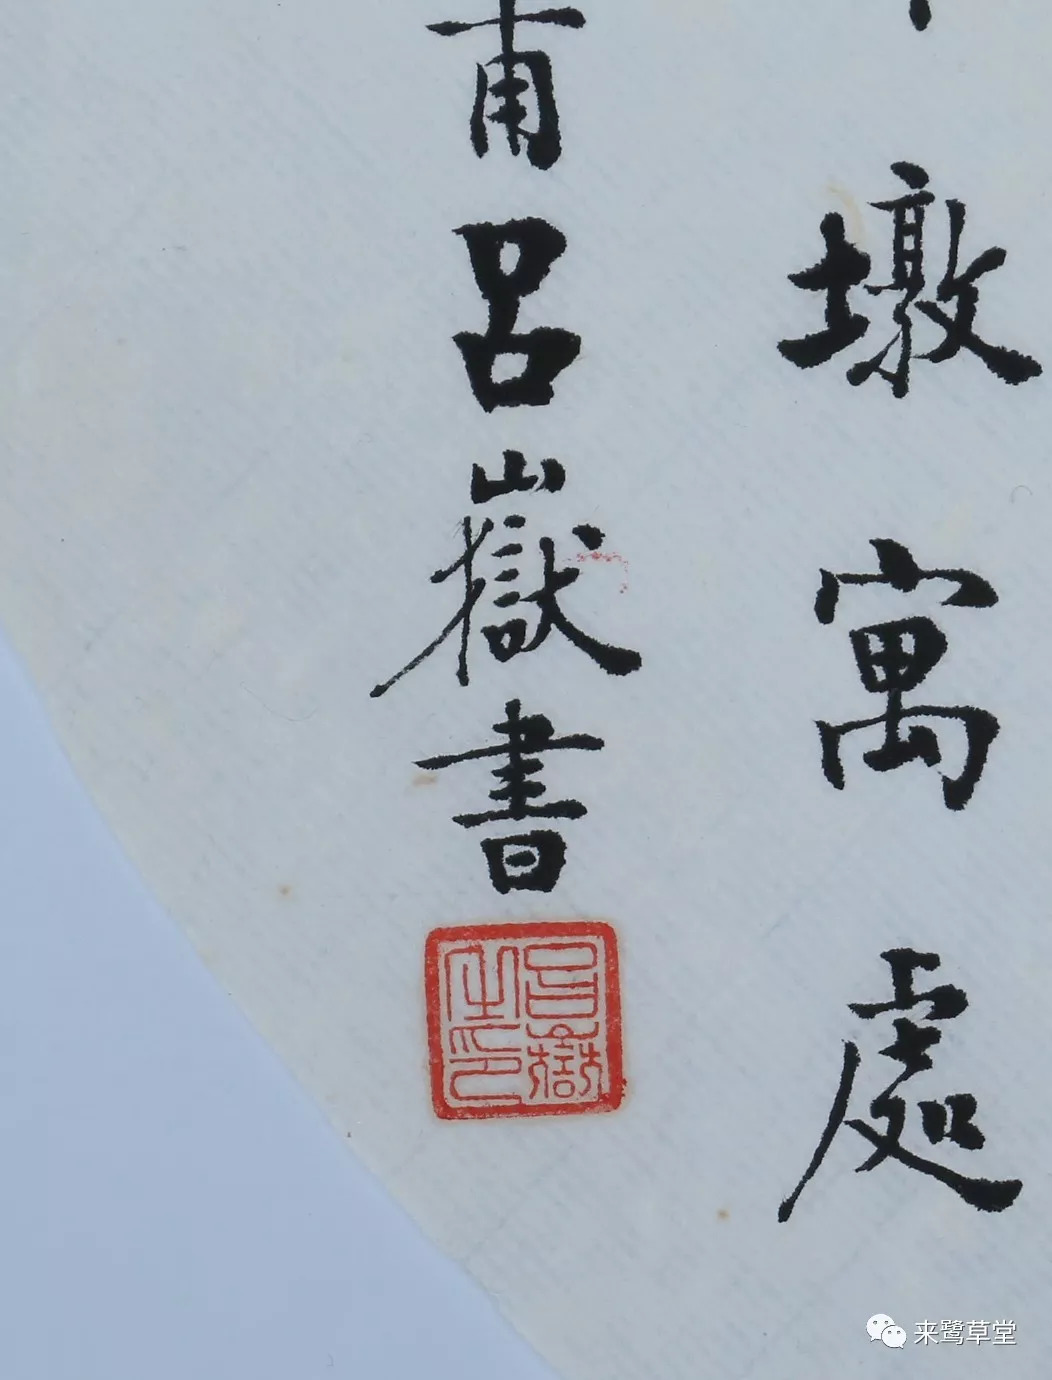 墩寓處
甫呂嶽書
呂嶽之印
来鹭草堂